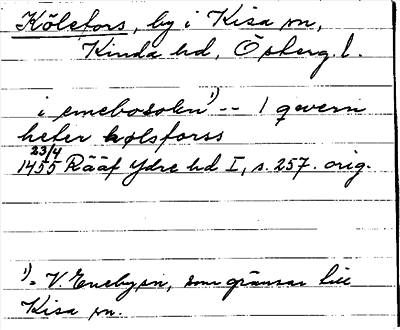 Kölefors, by i Kisa sn,
Kinda hd, Östergl.
i enebosokn 1) -- 1 qwern
heter kolsforss
23/4
1455 Rääf Ydre hd I, s. 257. orig.
1) = V. Eneby sn, som gränsar till
Kisa sn.